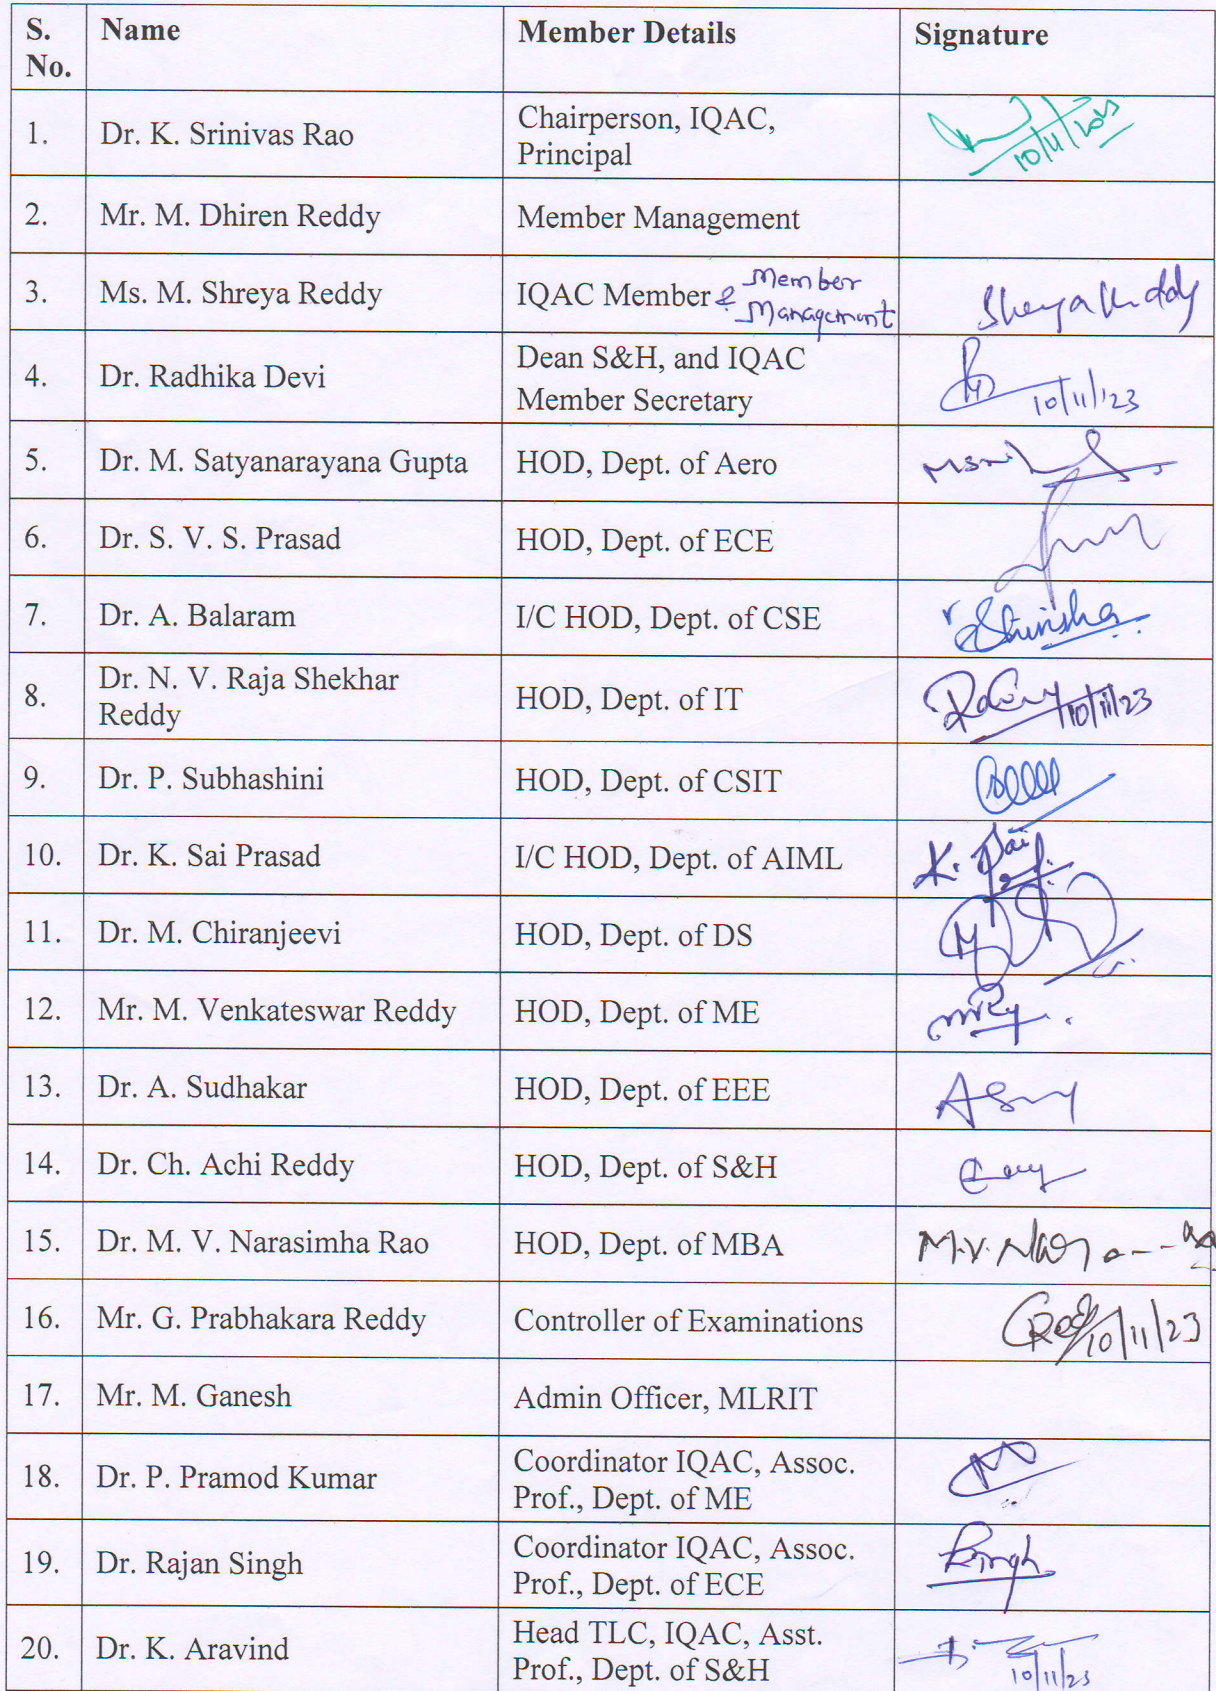 S. No. Name Member Details Signature
1. Dr. K. Srinivas Rao Chairperson, IQAC,
Principal 10/11/2023
2. Mr. M. Dhiren Reddy Member Management
3. Ms. M. Shreya Reddy IQAC Member & Member
Management Shreya Reddy
4. Dr. Radhika Devi Dean S&H, and IQAC
Member Secretary 10/11/'23
5. Dr. M. Satyanarayana Gupta HOD, Dept. of Aero
6. Dr. S. V. S. Prasad HOD, Dept. of ECE
7. Dr. A. Balaram I/C HOD, Dept. of CSE
8. Dr. N. V. Raja Shekhar
Reddy HOD, Dept. of IT 10/11/23
9. Dr. P. Subhashini HOD, Dept. of CSIT
10. Dr. K. Sai Prasad I/C HOD, Dept. of AIML K. Sai
11. Dr. M. Chiranjeevi HOD, Dept. of DS
12. Mr. M. Venkateswar Reddy HOD, Dept. of ME
13. Dr. A. Sudhakar HOD, Dept. of EEE
14. Dr. Ch. Achi Reddy HOD, Dept. of S&H
15. Dr. M. V. Narasimha Rao HOD, Dept. of MBA M.V.
16. Mr. G. Prabhakara Reddy Controller of Examinations 10/11/23
17. Mr. M. Ganesh Admin Officer, MLRIT
18. Dr. P. Pramod Kumar Coordinator IQAC, Assoc.
Prof., Dept. of ME
19. Dr. Rajan Singh Coordinator IQAC, Assoc.
Prof., Dept. of ECE
20. Dr. K. Aravind Head TLC, IQAC, Asst.
Prof., Dept. of S&H 10/11/23